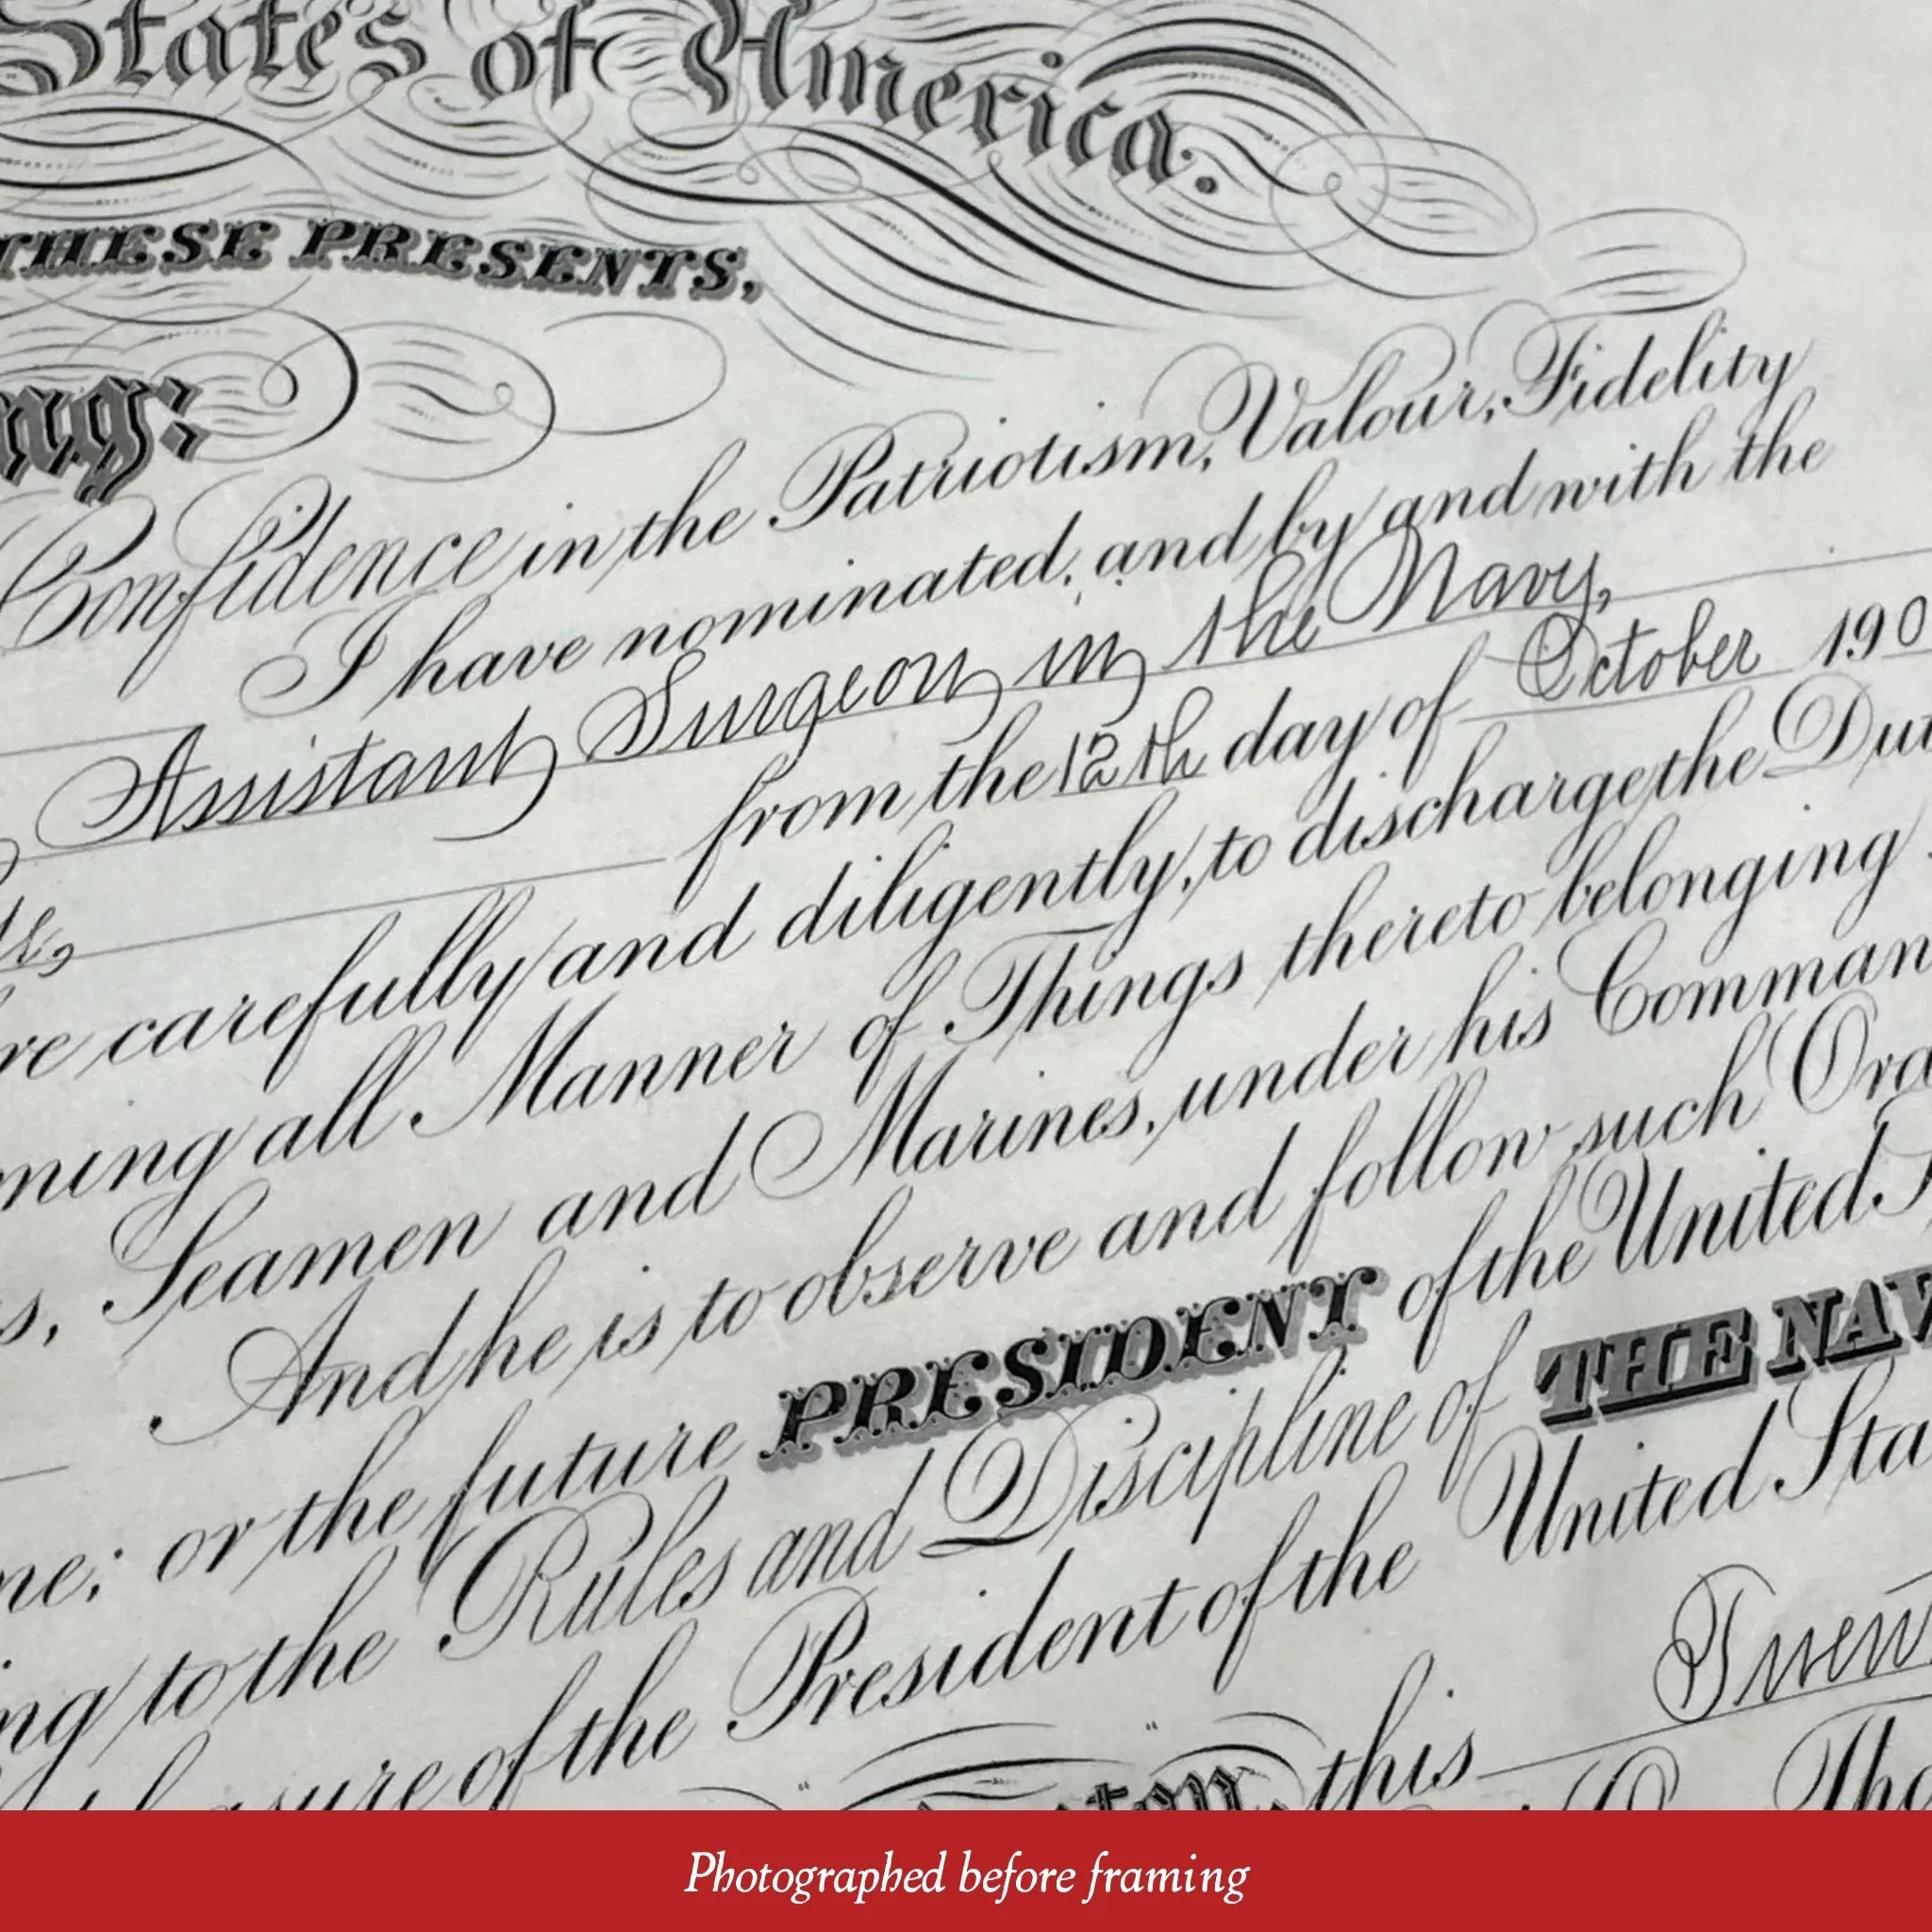 States of America.
THESE PRESENTS,
Confidence in the Patriotism, Valour, Fidelity
I have nominated, and by and with the
Assistant Surgeon in the Navy,
from the 12th day of October 190
carefully and diligently, to discharge the
all Manner of Things thereto belonging
Seamen and Marines, under his
And he is to observe and follow such
or the future PRESIDENT of the United
to the Rules and Discipline of THE
of the President of the United
this
Photographed before framing